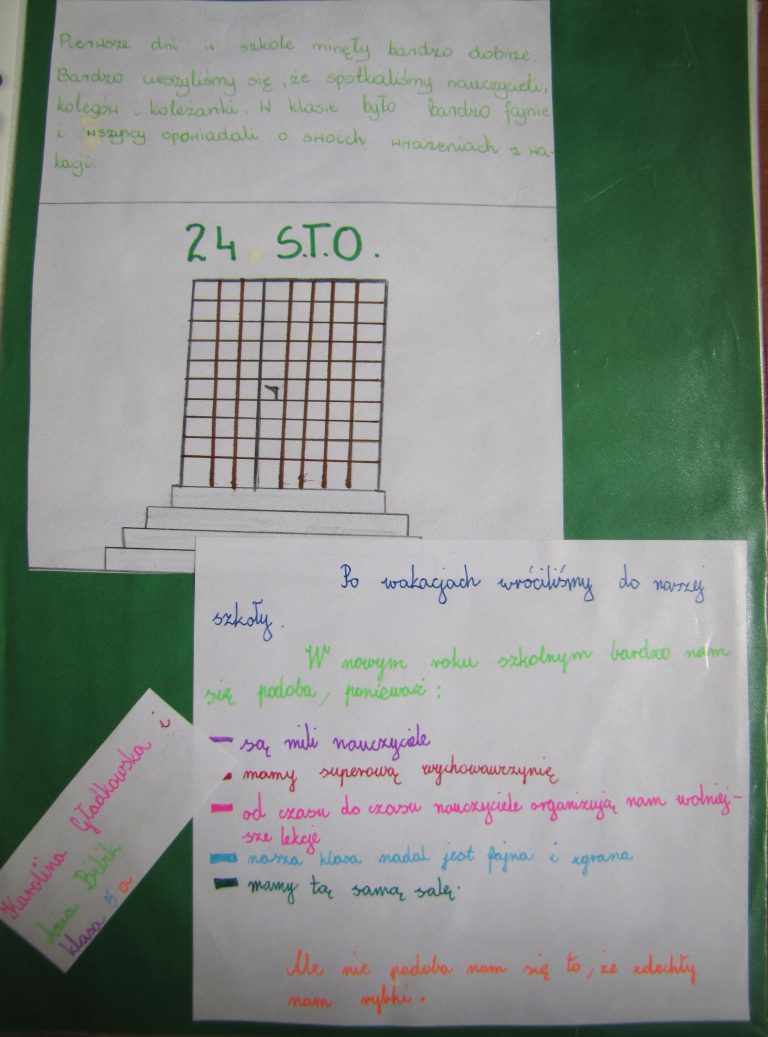 Pierwsze dni w szkole minęły bardzo dobrze.
Bardzo ucszyliśmy się, że spotkaliśmy nauczycieli,
kolegów i koleżanki. W klasie było bardzo fajnie
i wszyscy opowiadali o swoich wrażeniach z wa-
kacji.
24 S.T.O.
Po wakacjach wróciliśmy do naszej
szkoły.
W nowym roku szkolnym bardzo nam
się podoba, ponieważ:
- są mili nauczyciele
- mamy superową wychowawczynię
- od czasu do czasu nauczyciele organizują nam wolniej-
sze lekcje
- nasza klasa nadal jest fajna i zgrana
- mamy tą samą salę.
Ale nie podoba nam się to, że zdechły
nam rybki.
Karolina Gładkowska i
Bibik
klasa 5 a